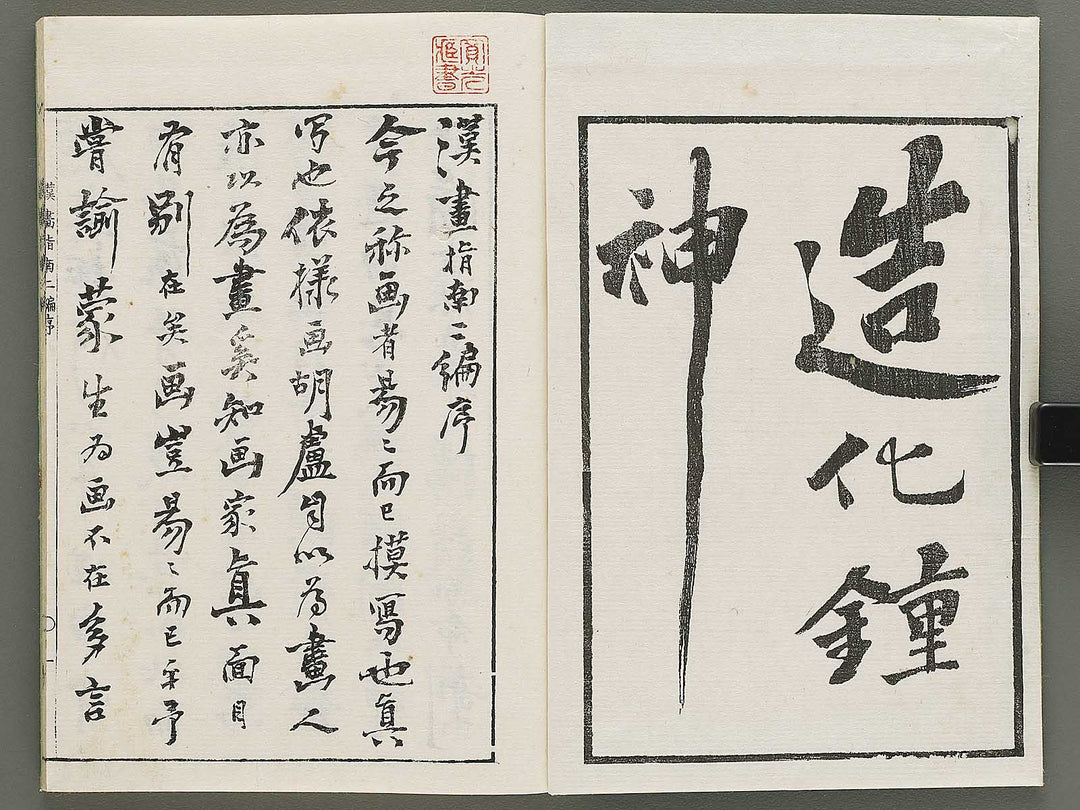 造化鍾
神
漢畫指南二編序
今之称画者易〻而已摸寫也眞
写也依様画胡盧自以為畫人
亦以為畫奚知画家眞面目
有別在矣画豈易〻而已乎予
嘗諭蒙生为画不在多言
漢畫指南二編序
〇一